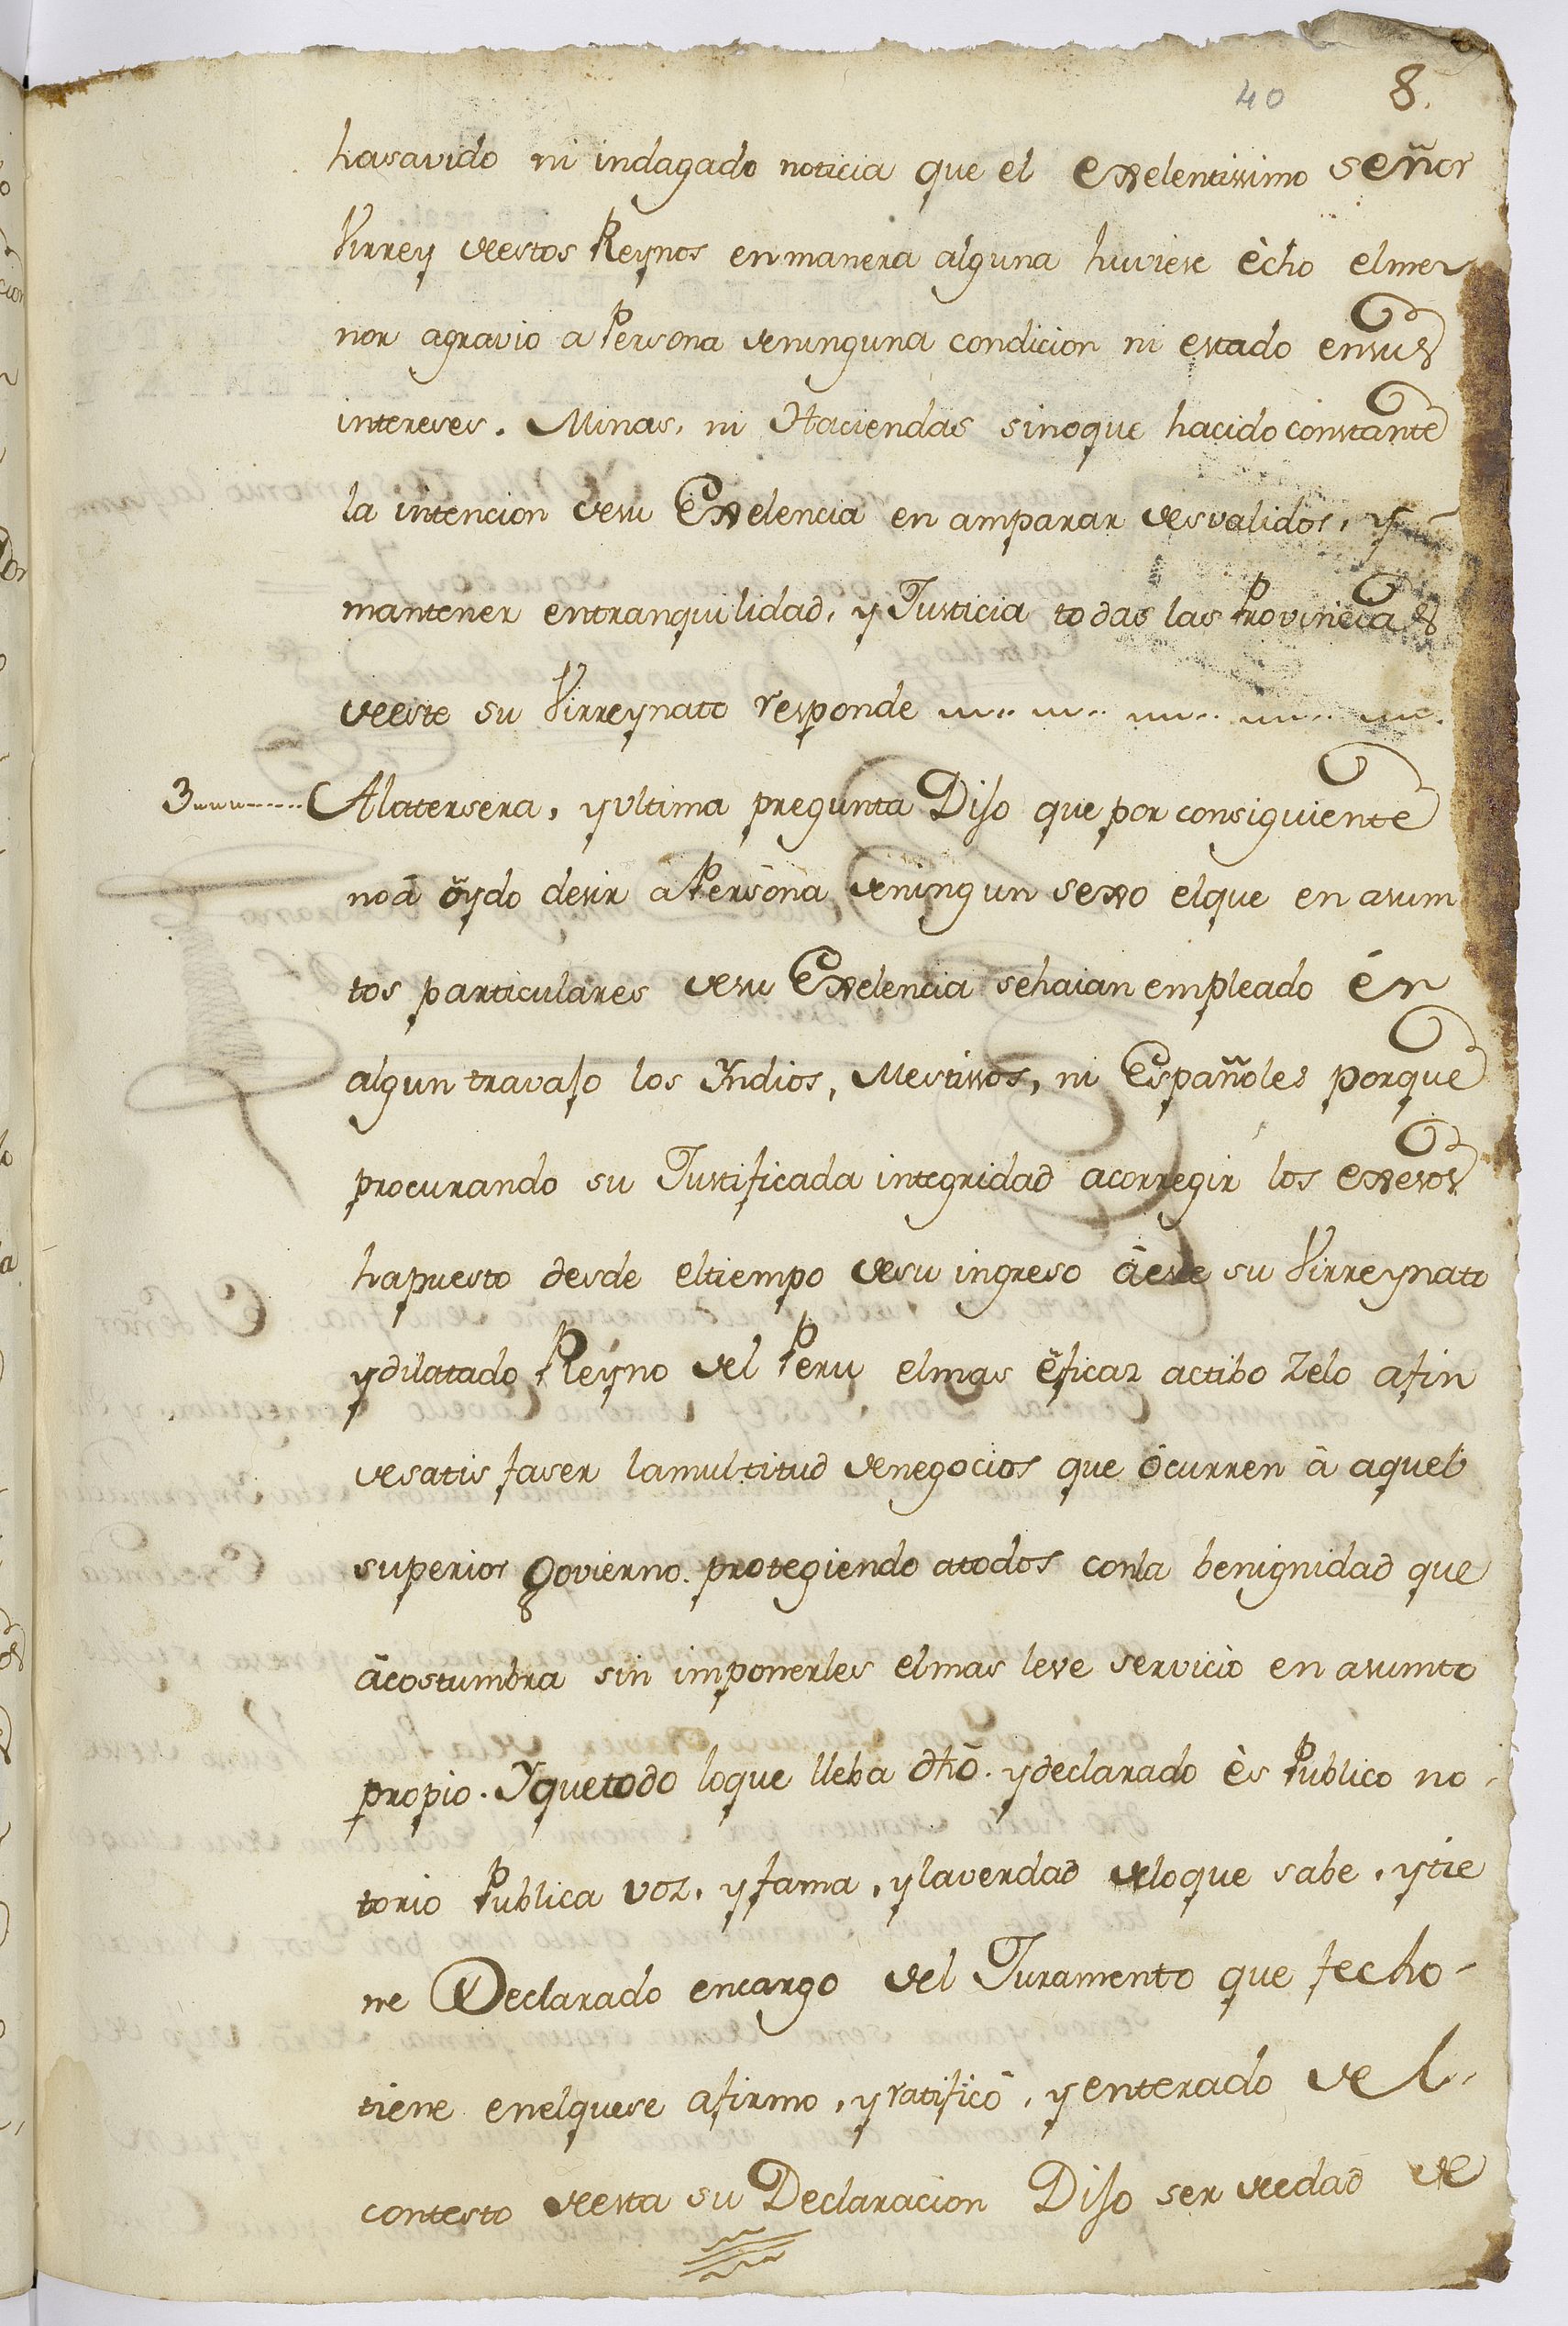 40 8.
hasavido ni indagado noticia que el exelentissimo señor
Virrey deestos Reynos enmanera alguna huviese ècho elme
nor agravio a Persona deninguna condicion ni estado ensus
intereses. Minas, ni Haciendas sinoque hacido constante
la intencion desu Exelencia en amparar desvalidos, y
mantener entranquilidad, y Justicia todas las Provincias
deeste su Virreynato responde
3 Alatersera, yultima pregunta Dijo que por consiguiente
noâ oydo desir a Persona deningun sexo elque en asum
tos particulares desu Exelencia sehaian empleado én
algun travajo los Yndios, Mestissos, ni Españoles porque
procurando su Justificada integridad acorregir los exesos
hapuesto desde eltiempo desu ingreso âeste su Virreynato
ydilatado Reyno del Peru elmas êficaz actibo Zelo afin
desatisfaser lamultitud denegocios que ôcurren â aquel
superior Govierno. protegiendo atodos conla benignidad que
âcostumbra sin imponerles elmas leve servicio en asumto
propio. Yquetodo loque lleba dhô. ydeclarado ès Publico no
torio Publica voz, yfama, ylaverdad deloque sabe, ytie
ne Declarado encargo del Juramento que fecho
tiene enelquese afirmo, yratificô, yenterado del
contesto deesta su Declaracion Dijo ser deedad de